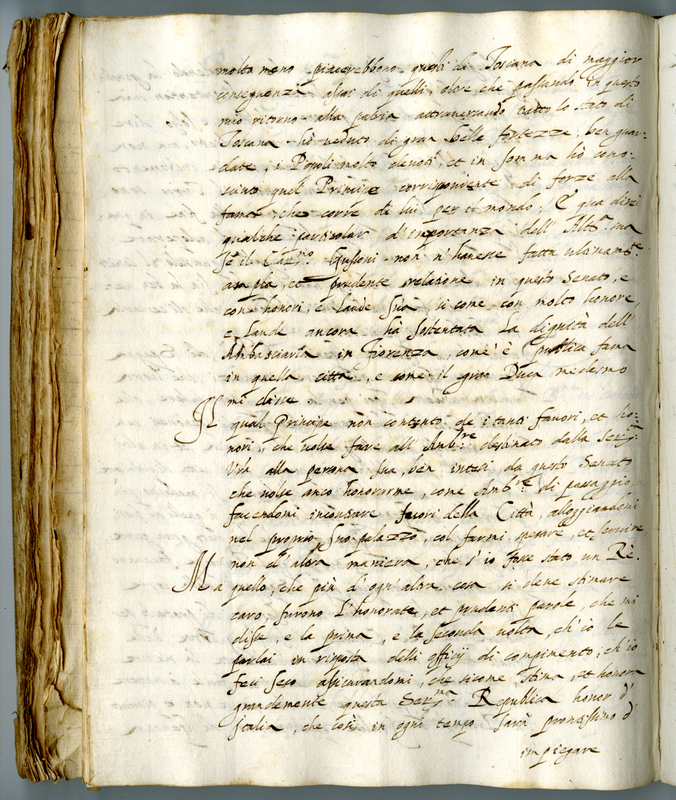 molto meno piacerebbono questi da Toscana di maggior
conseguenza assai di quelli, oltre che passando in questo
mio ritorno alla patria attraversando tutto lo stato di
Toscana hò veduto di gran belle fortezze, ben guar-
date, i Popoli molto devoti, et in somma hò cono-
sciuto quel Principe corrispondente di forze alla
fama, che corre di lui per il mondo, E qua direi
qualche particolar d'importanza dell' Altª. ma
se il Clarmo. Gussoni non n'havesse fatta ultimamte.
ampia, et prudente relatione in questo Senato, e
con honori, e laude sua si come con molto honore
e laude ancora hà sostentata la dignità dell'
Ambasciaria in Fiorenza, come è publica fama
in quella città, e come il gran Duca medesmo
mi disse
Il qual Principe non contento de i tanti favori, et ho-
nori, che volse fare all' Ambre. destinato dalla Sertà.
Vra alla persona sua, ben intesi da questo Senato
che volse anco honorarme, come Ambre. di passaggio,
facendomi incontrare fuori della Città, alloggiandomi
nel proprio suo palazzo, col farmi spesare, et servire,
non d'altra maniera, che s'io fosse stato un Rè.
Ma quello, che più d'ogn'altra cosa si deve stimare
caro, furono l'honorate, et prudenti parole, che mi
disse, e la prima, e la seconda volta, ch'io le
parlai in risposta delli officij di complimento, ch'io
feci seco assicurandomi, che sicome stima, et honora
grandemente questa Serma. Republica honor d'
Italia, che così in ogni tempo sarà prontissimo d'
impiegare